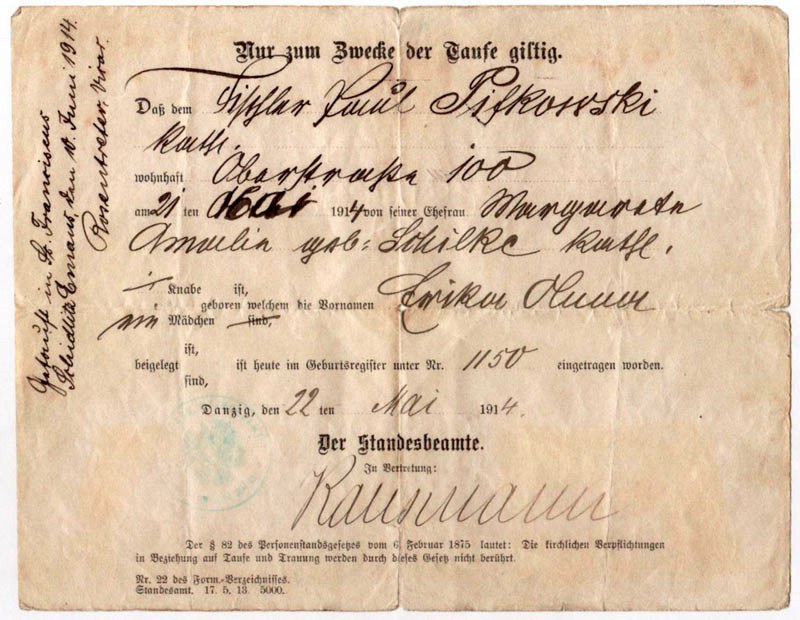 Nur zum Zwecke der Taufe giltig.
Daß dem Tischler Paul Pifkowski
kath.
wohnhaft Oberstraße 100
am 21 ten Mai 1914 von seiner Ehefrau Margarete
Amalie geb. Schilke kath.
Knabe ist,
geboren welchem die Vornamen Erika
ein Mädchen sind,
ist,
beigelegt ist heute im Geburtsregister unter Nr. 1150 eingetragen worden.
sind,
Danzig, den 22 ten Mai 1914.
Der Standesbeamte.
In Vertretung:
Der § 82 des Personenstandsgesetzes vom 6. Februar 1875 lautet: Die kirchlichen Verpflichtungen
in Beziehung auf Taufe und Trauung werden durch dieses Gesetz nicht berührt.
Nr. 22 des Form.-Verzeichnisses.
Standesamt. 17. 5. 13. 5000.
Getauft in St. Franciscus
Schidlitz Emaus, den 10. Juni 1914.
Rosentreter, Vikar.